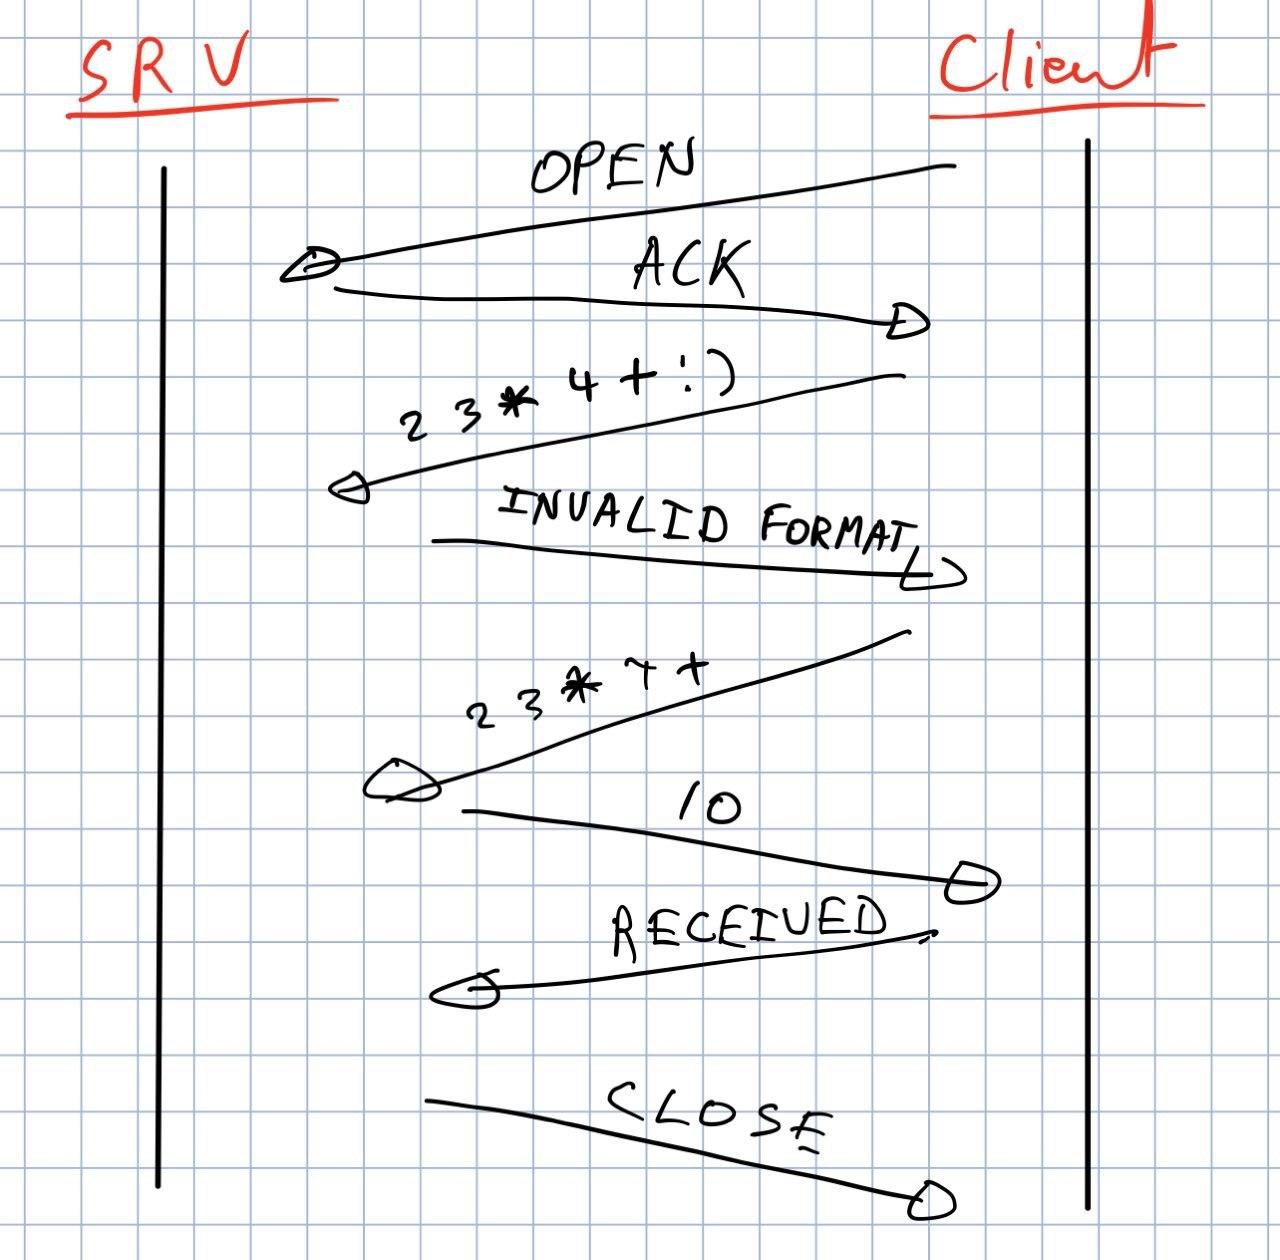 SRV
Client
OPEN
ACK
2 3 * 4 + :)
INVALID FORMAT
2 3 * 7 +
10
RECEIVED
CLOSE